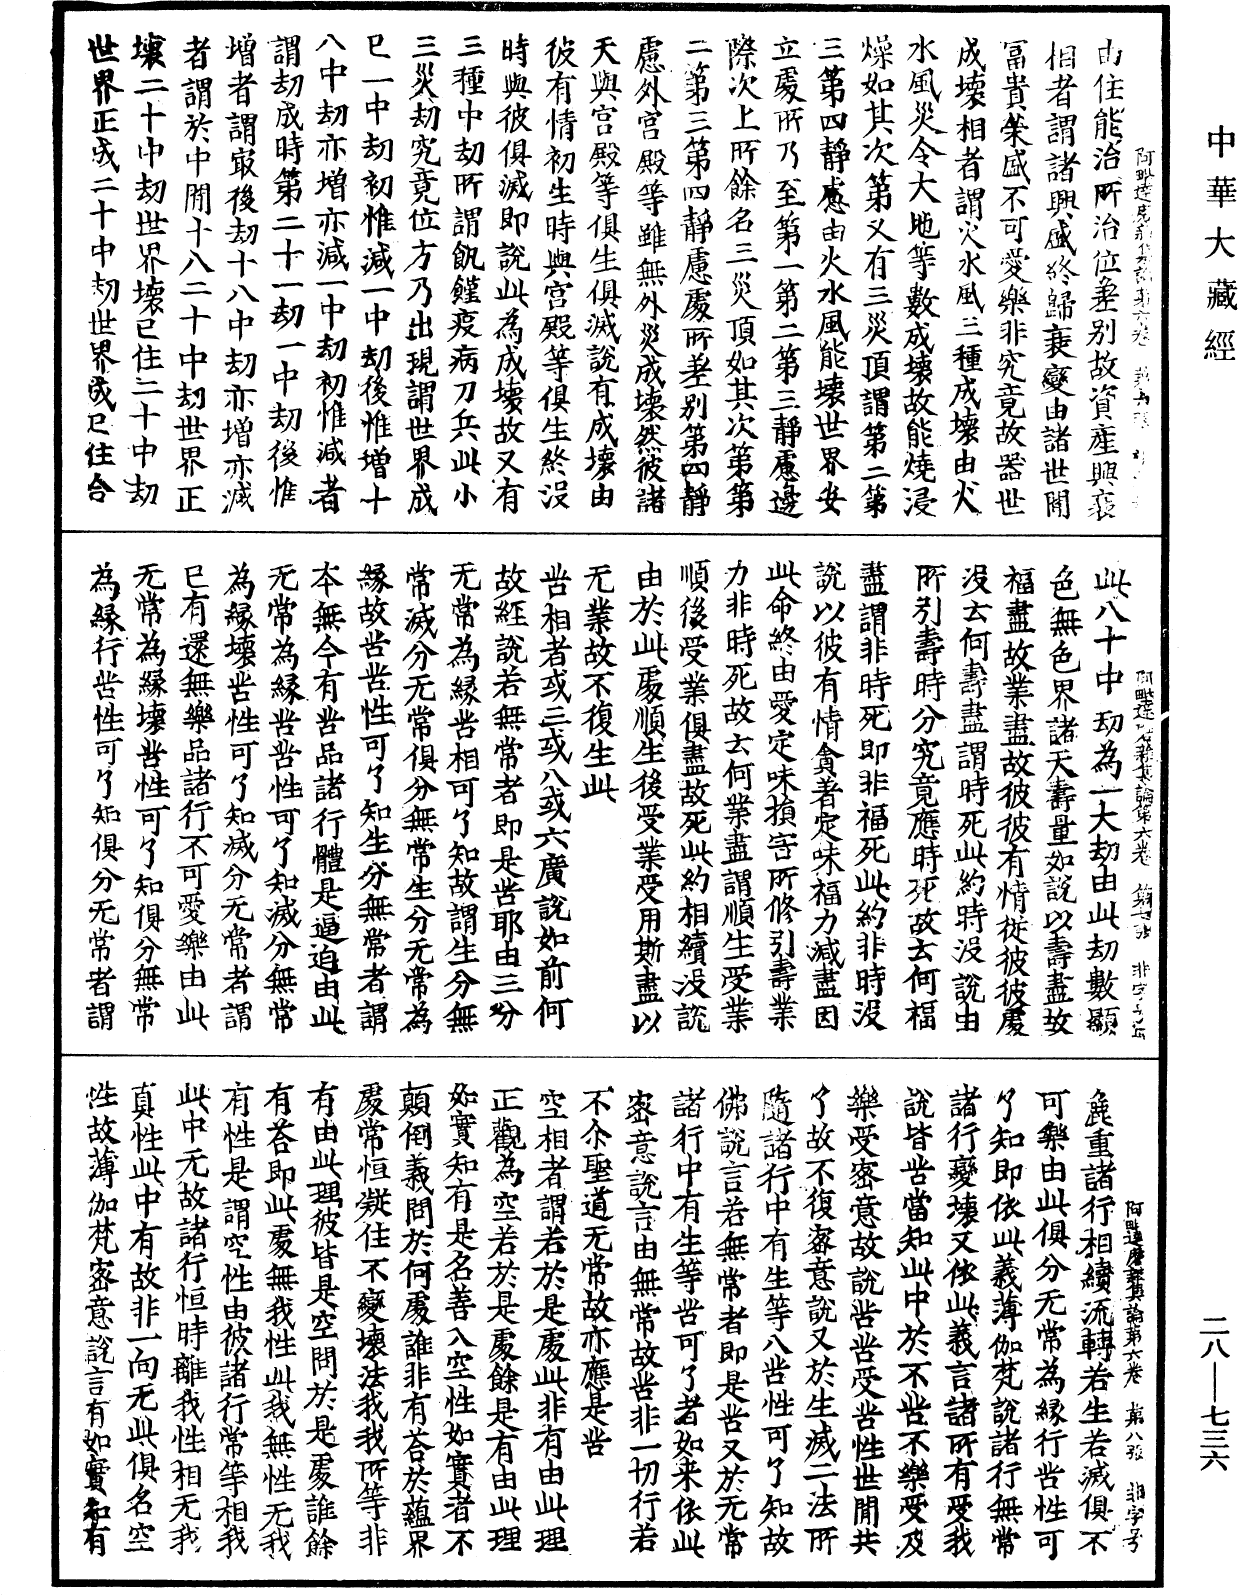 中華大藏經
由住能治所治位差別故資產興衰
相者謂諸興盛終歸衰變由諸世間
冨貴榮盛不可愛樂非究竟故器世
成壞相者謂火水風三種成壞由火
水風災令大地等數成壞故能燒浸
燥如其次第又有三災頂謂第二第
三第四靜慮由火水風能壞世界安
立處所乃至第一第二第三靜慮邊
際次上所餘名三災頂如其次第第
二第三第四靜慮處所差別第四靜
慮外宮殿等雖無外災成壞然彼諸
天與宮殿等俱生俱滅說有成壞由
彼有情初生時與宮殿等俱生終沒
時與彼俱滅即說此為成壞故又有
三種中劫所謂飢饉疫病刀兵此小
三災劫究竟位方乃出現謂世界成
已一中劫初惟減一中劫後惟增十
八中劫亦增亦減一中劫初惟減者
謂劫成時第二十一劫一中劫後惟
增者謂㝡後劫十八中劫亦增亦減
者謂於中閒十八二十中劫世界正
壞二十中劫世界壞已住二十中劫
世界正成二十中劫世界成已住合
此八十中劫為一大劫由此劫數顯
色無色界諸天壽量如說以壽盡故
福盡故業盡故彼彼有情從彼彼處
沒云何壽盡謂時死此約時沒說由
所引壽時分究竟應時死故云何福
盡謂非時死即非福死此約非時沒
說以彼有情貪著定味福力減盡因
此命終由愛定味損害所修引壽業
力非時死故云何業盡謂順生受業
順後受業俱盡故死此約相續沒說
由於此處順生後受業受用斯盡以
无業故不復生此
苦相者或三或八或六廣說如前何
故經說若無常者即是苦耶由三分
无常為緣苦相可了知故謂生分無
常滅分无常俱分無常生分无常為
緣故苦苦性可了知生分無常者謂
本無今有苦品諸行體是逼迫由此
无常為緣苦苦性可了知滅分無常
為緣壞苦性可了知滅分无常者謂
已有還無樂品諸行不可愛樂由此
无常為緣壞苦性可了知俱分無常
為緣行苦性可了知俱分无常者謂
阿毗達磨雜集論第六卷　第八張　非字号
麁重諸行相續流轉若生若滅俱不
可樂由此俱分无常為緣行苦性可
了知即依此義薄伽梵說諸行無常
諸行變壞又依此義言諸所有受我
說皆苦當知此中於不苦不樂受及
樂受密意故說苦苦受苦性世間共
了故不復密意說又於生滅二法所
隨諸行中有生等八苦性可了知故
佛說言若無常者即是苦又於无常
諸行中有生等苦可了者如来依此
密意說言由無常故苦非一切行若
不尒聖道无常故亦應是苦
空相者謂若於是處此非有由此理
正觀為空若於是處餘是有由此理
如實知有是名善入空性如實者不
顛倒義問於何處誰非有荅於蘊界
處常恒凝住不變壞法我我所等非
有由此理彼皆是空問於是處誰餘
有荅即此處無我性此我無性无我
有性是謂空性由彼諸行常等相我
此中无故諸行恒時離我性相无我
真性此中有故非一向无此俱名空
性故薄伽梵密意說言有如實知有
二八—七三六